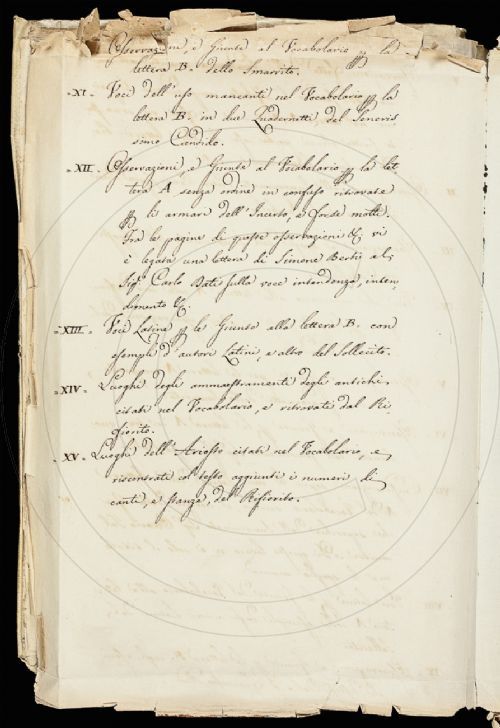 Osservazioni, e Giunte al Vocabolario p la
lettera B. dello Smarrito.
=XI= Voci dell'uso mancanti nel Vocabolario p la
lettera B. in due Quadernetti del Seneris
simo Candido.
=XII= Osservazioni, e Giunte al Vocabolario p la let
tera A senza ordine in confuso ritrovate
p li armari dell'Incerto, e forse molte.
Fra le pagine di queste osservazioni &c. vi
è legata una lettera di Simone Berti al
Sigr. Carlo Dati sulla voce intendenza, inten
dimento &c.
=XIII= Voci Latine p le Giunte alla lettera B. con
esempli d'autori Latini, e altro del Sollecito.
=XIV= Luoghi degli ammaestramenti degli antichi
citati nel Vocabolario, e ritrovati dal Ri
fiorito.
=XV= Luoghi dell'Ariosto citati nel Vocabolario, e
riscontrati col testo aggiunti i numeri di
canti, e stanze, del Rifiorito.